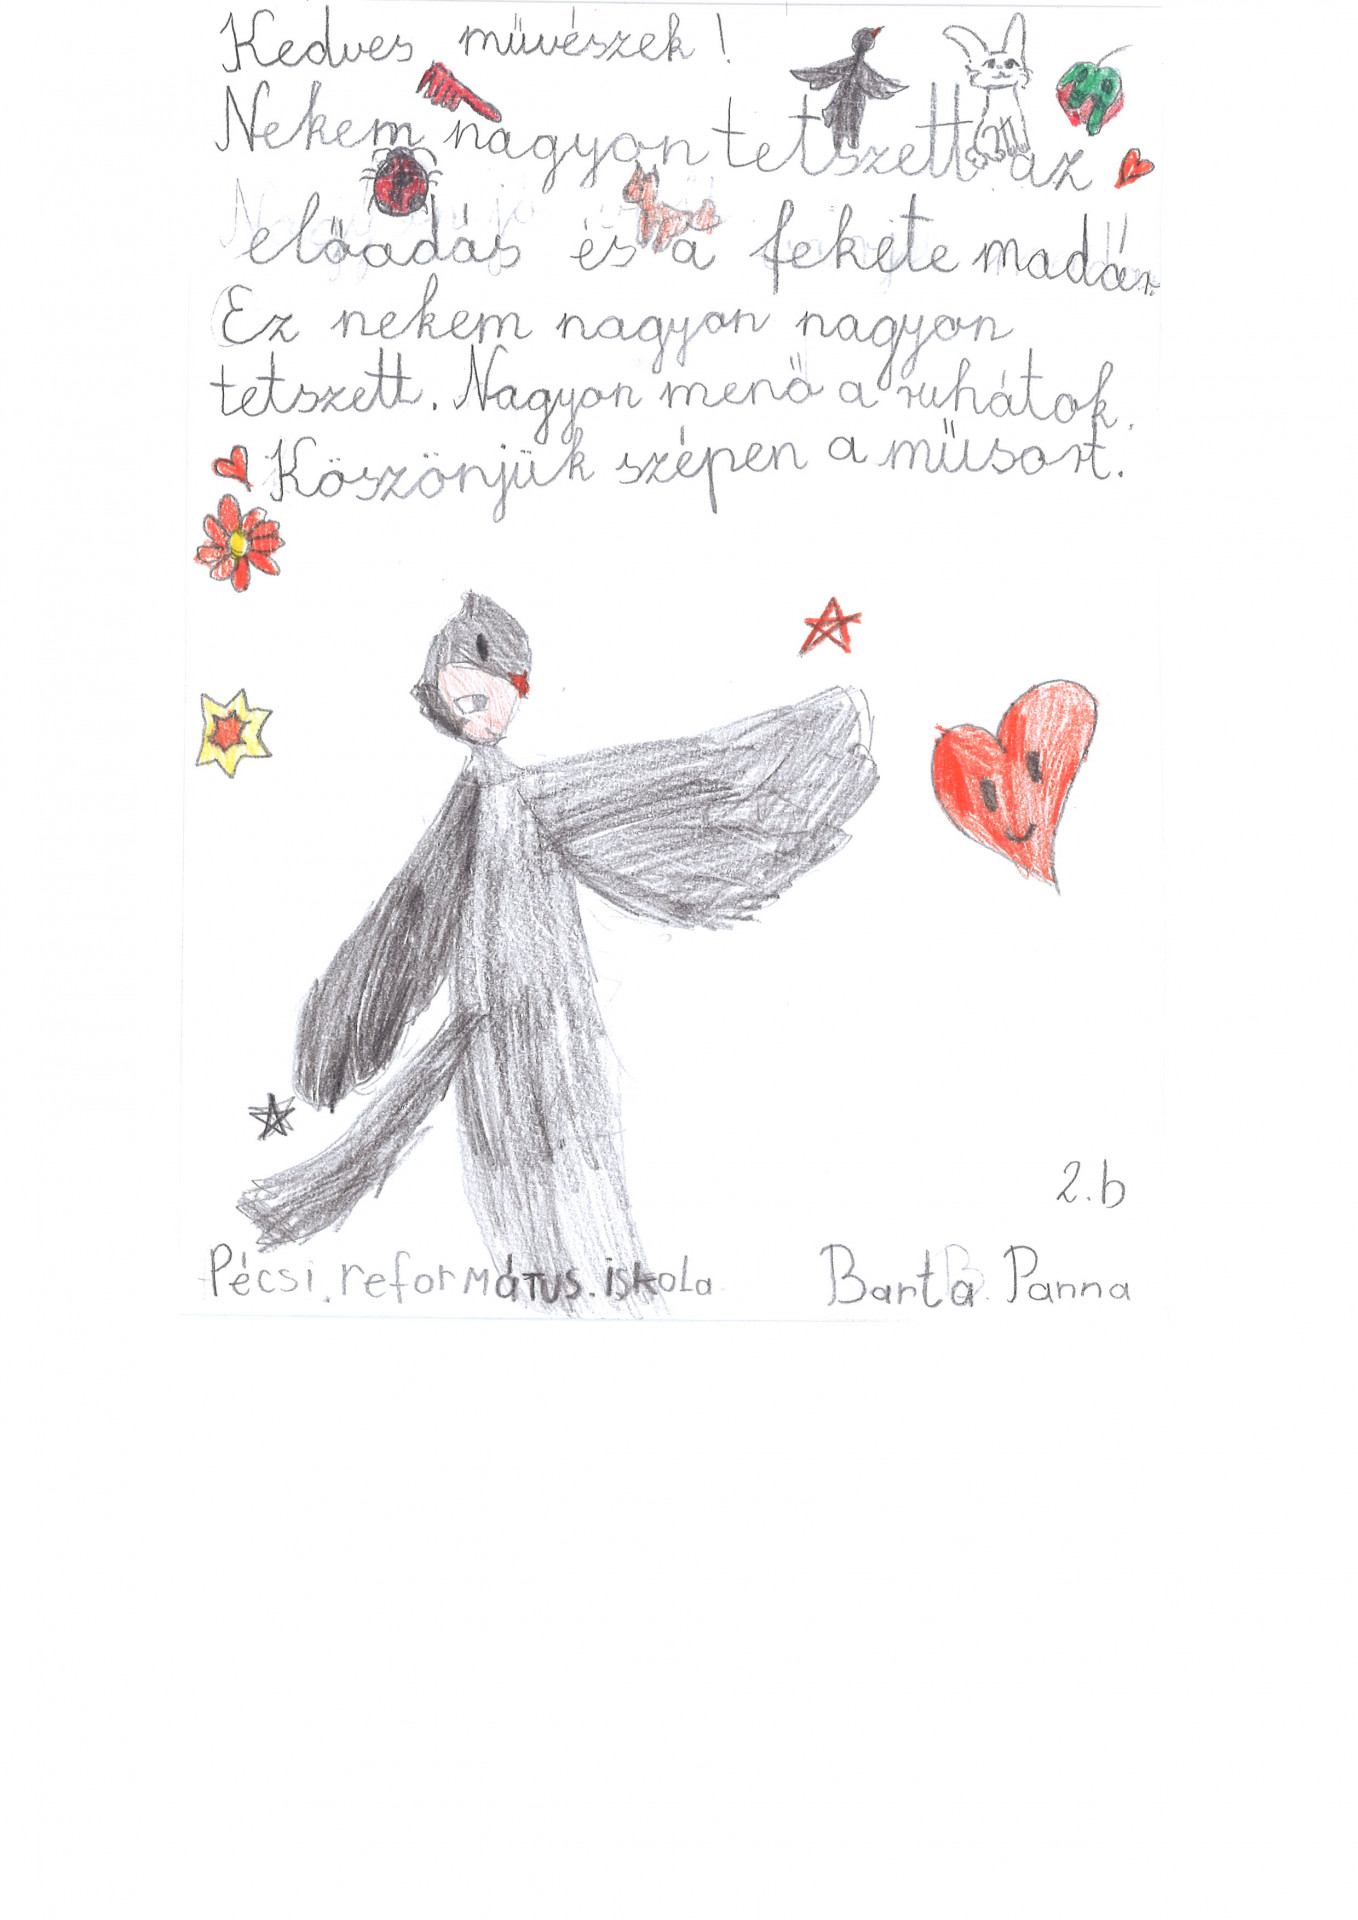 Kedves művészek!
Nekem nagyon tetszett az
előadás és a fekete madár.
Ez nekem nagyon nagyon
tetszett. Nagyon menő a ruhátok.
Köszönjük szépen a műsort.
2.b
Pécsi. református. iskola
Barta Panna